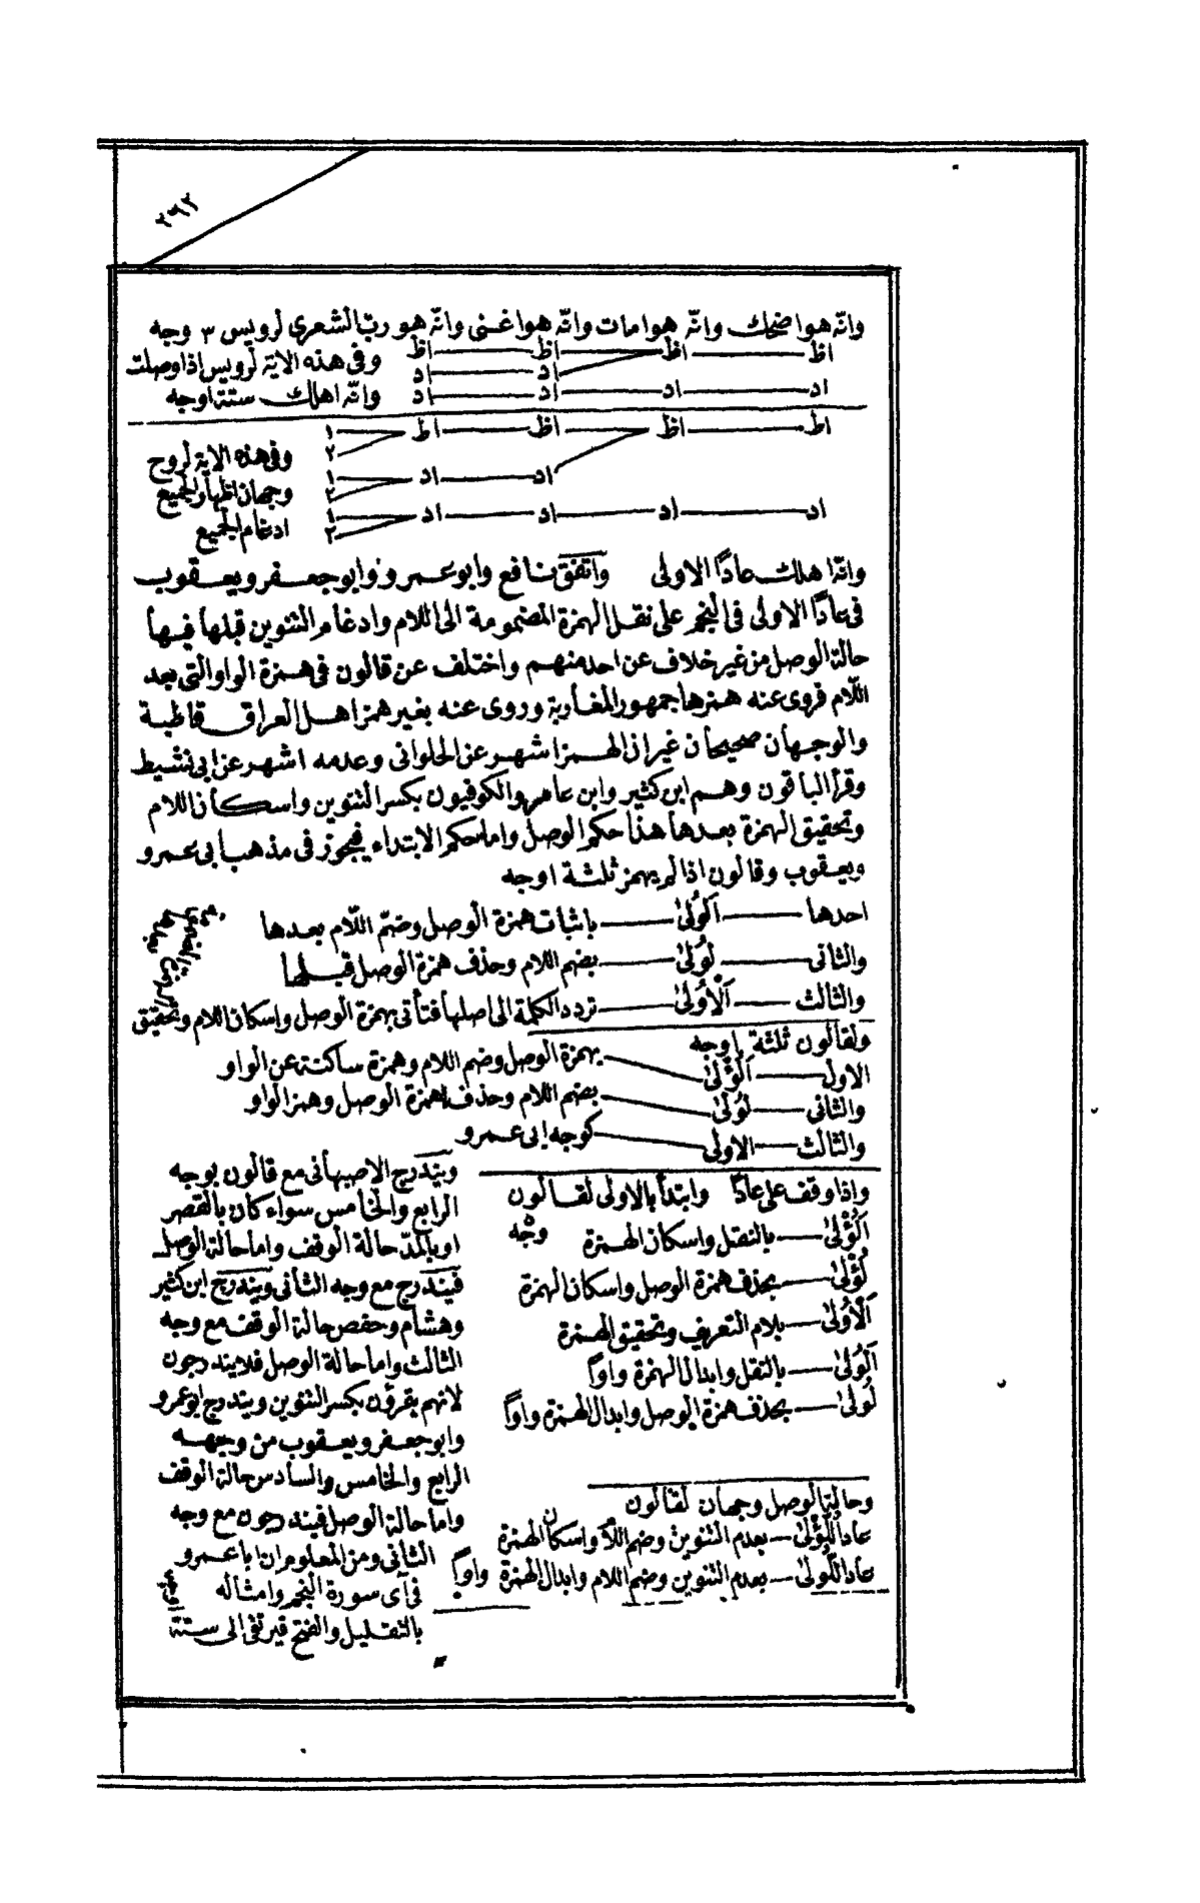 ٢٦٢
وانّه هوا ضحك وانّه هوا مات وانّه هوا غنى وانّه هو ربّ الشعرى لرويس ٣ وجه
اظ اظ اظ اظ وفى هذه الاية لرويس اذا وصلت
اد اد
اد اد اد اد وانّه اهلك ستة اوجه
اظ اظ اظ اظ ١ ٢
وفى هذه الاية لروح
اد اد ١ ٢ وجهان اظهار الجميع
اد اد اد اد ١ ٢ ادغام الجميع
وانّه اهلك عادًا الاولى واتفق نافع وابو عمرو وابو جعفر ويعقوب
فى عادًا الاولى فى النجم على نقل الهمزة المضمومة الى اللام وادغام التنوين قبلها فيها
حالة الوصل من غير خلاف عن احد منهم واختلف عن قالون فى همزة الواو التى بعد
اللّام فروى عنه همزها جمهور المغاربة وروى عنه بغير همز اهل العراق قاطبة
والوجهان صحيحان غير ان الهمز اشهر عن الحلوانى وعدمه اشهر عن ابى نشيط
وقرأ الباقون وهم ابن كثير وابن عامر والكوفيون بكسر التنوين واسكان اللام
وتحقيق الهمزة بعدها هذا حكم الوصل واما حكم الابتداء فيجوز فى مذهب ابى عمرو
ويعقوب وقالون اذا لم يهمز ثلثة اوجه
احدها اَلُولىٰ باثبات همزة الوصل وضمّ اللّام بعدها
والثانى لُولىٰ بضم اللام وحذف همزة الوصل قبلها
والثالث اَلْاُولىٰ تردد الكلمة الى اصلها فتأتى بهمزة الوصل واسكان اللام وتحقيق
ولقالون ثلثة اوجه
الاول اَلُؤْلىٰ بهمزة الوصل وضم اللام وهمزة ساكنة عن الواو
والثانى لُؤْلىٰ بضم اللام وحذف همزة الوصل وهمز الواو
والثالث الاولى كوجه ابى عمرو
واذا وقف على عادًا وابتدأ بالاولى لقالون
اَلُؤْلىٰ بالنقل واسكان الهمزة وجه
لُؤْلىٰ بحذف همزة الوصل واسكان الهمزة
اَلْاُولىٰ بلام التعريف وتحقيق الهمزة
اَلُولىٰ بالنقل وابدال الهمزة واوًا
لُولىٰ بحذف همزة الوصل وابدال الهمزة واوًا
وحالة الوصل وجهان لقالون
عادا لُّؤْلىٰ بعدم التنوين وضم اللام واسكان الهمزة
عادا لُّولىٰ بعدم التنوين وضم اللام وابدال الهمزة واوًا
ويندرج الاصبهانى مع قالون بوجه
الرابع والخامس سواء كان بالقصر
او بالمدّ حالة الوقف واما حالة الوصل
فيندرج مع وجه الثانى ويندرج ابن كثير
وهشام وحفص حالة الوقف مع وجه
الثالث واما حالة الوصل فلا يندرجون
لانهم يقرؤن بكسر التنوين ويندرج ابو عمرو
وابو جعفر ويعقوب من وجهه
الرابع والخامس والسادس حالة الوقف
واما حالة الوصل فيندرجون مع وجه
الثانى ومن المعلوم ان ابا عمرو
فى آى سورة النجم وامثاله
بالتقليل والفتح فيرتقى الى ستة